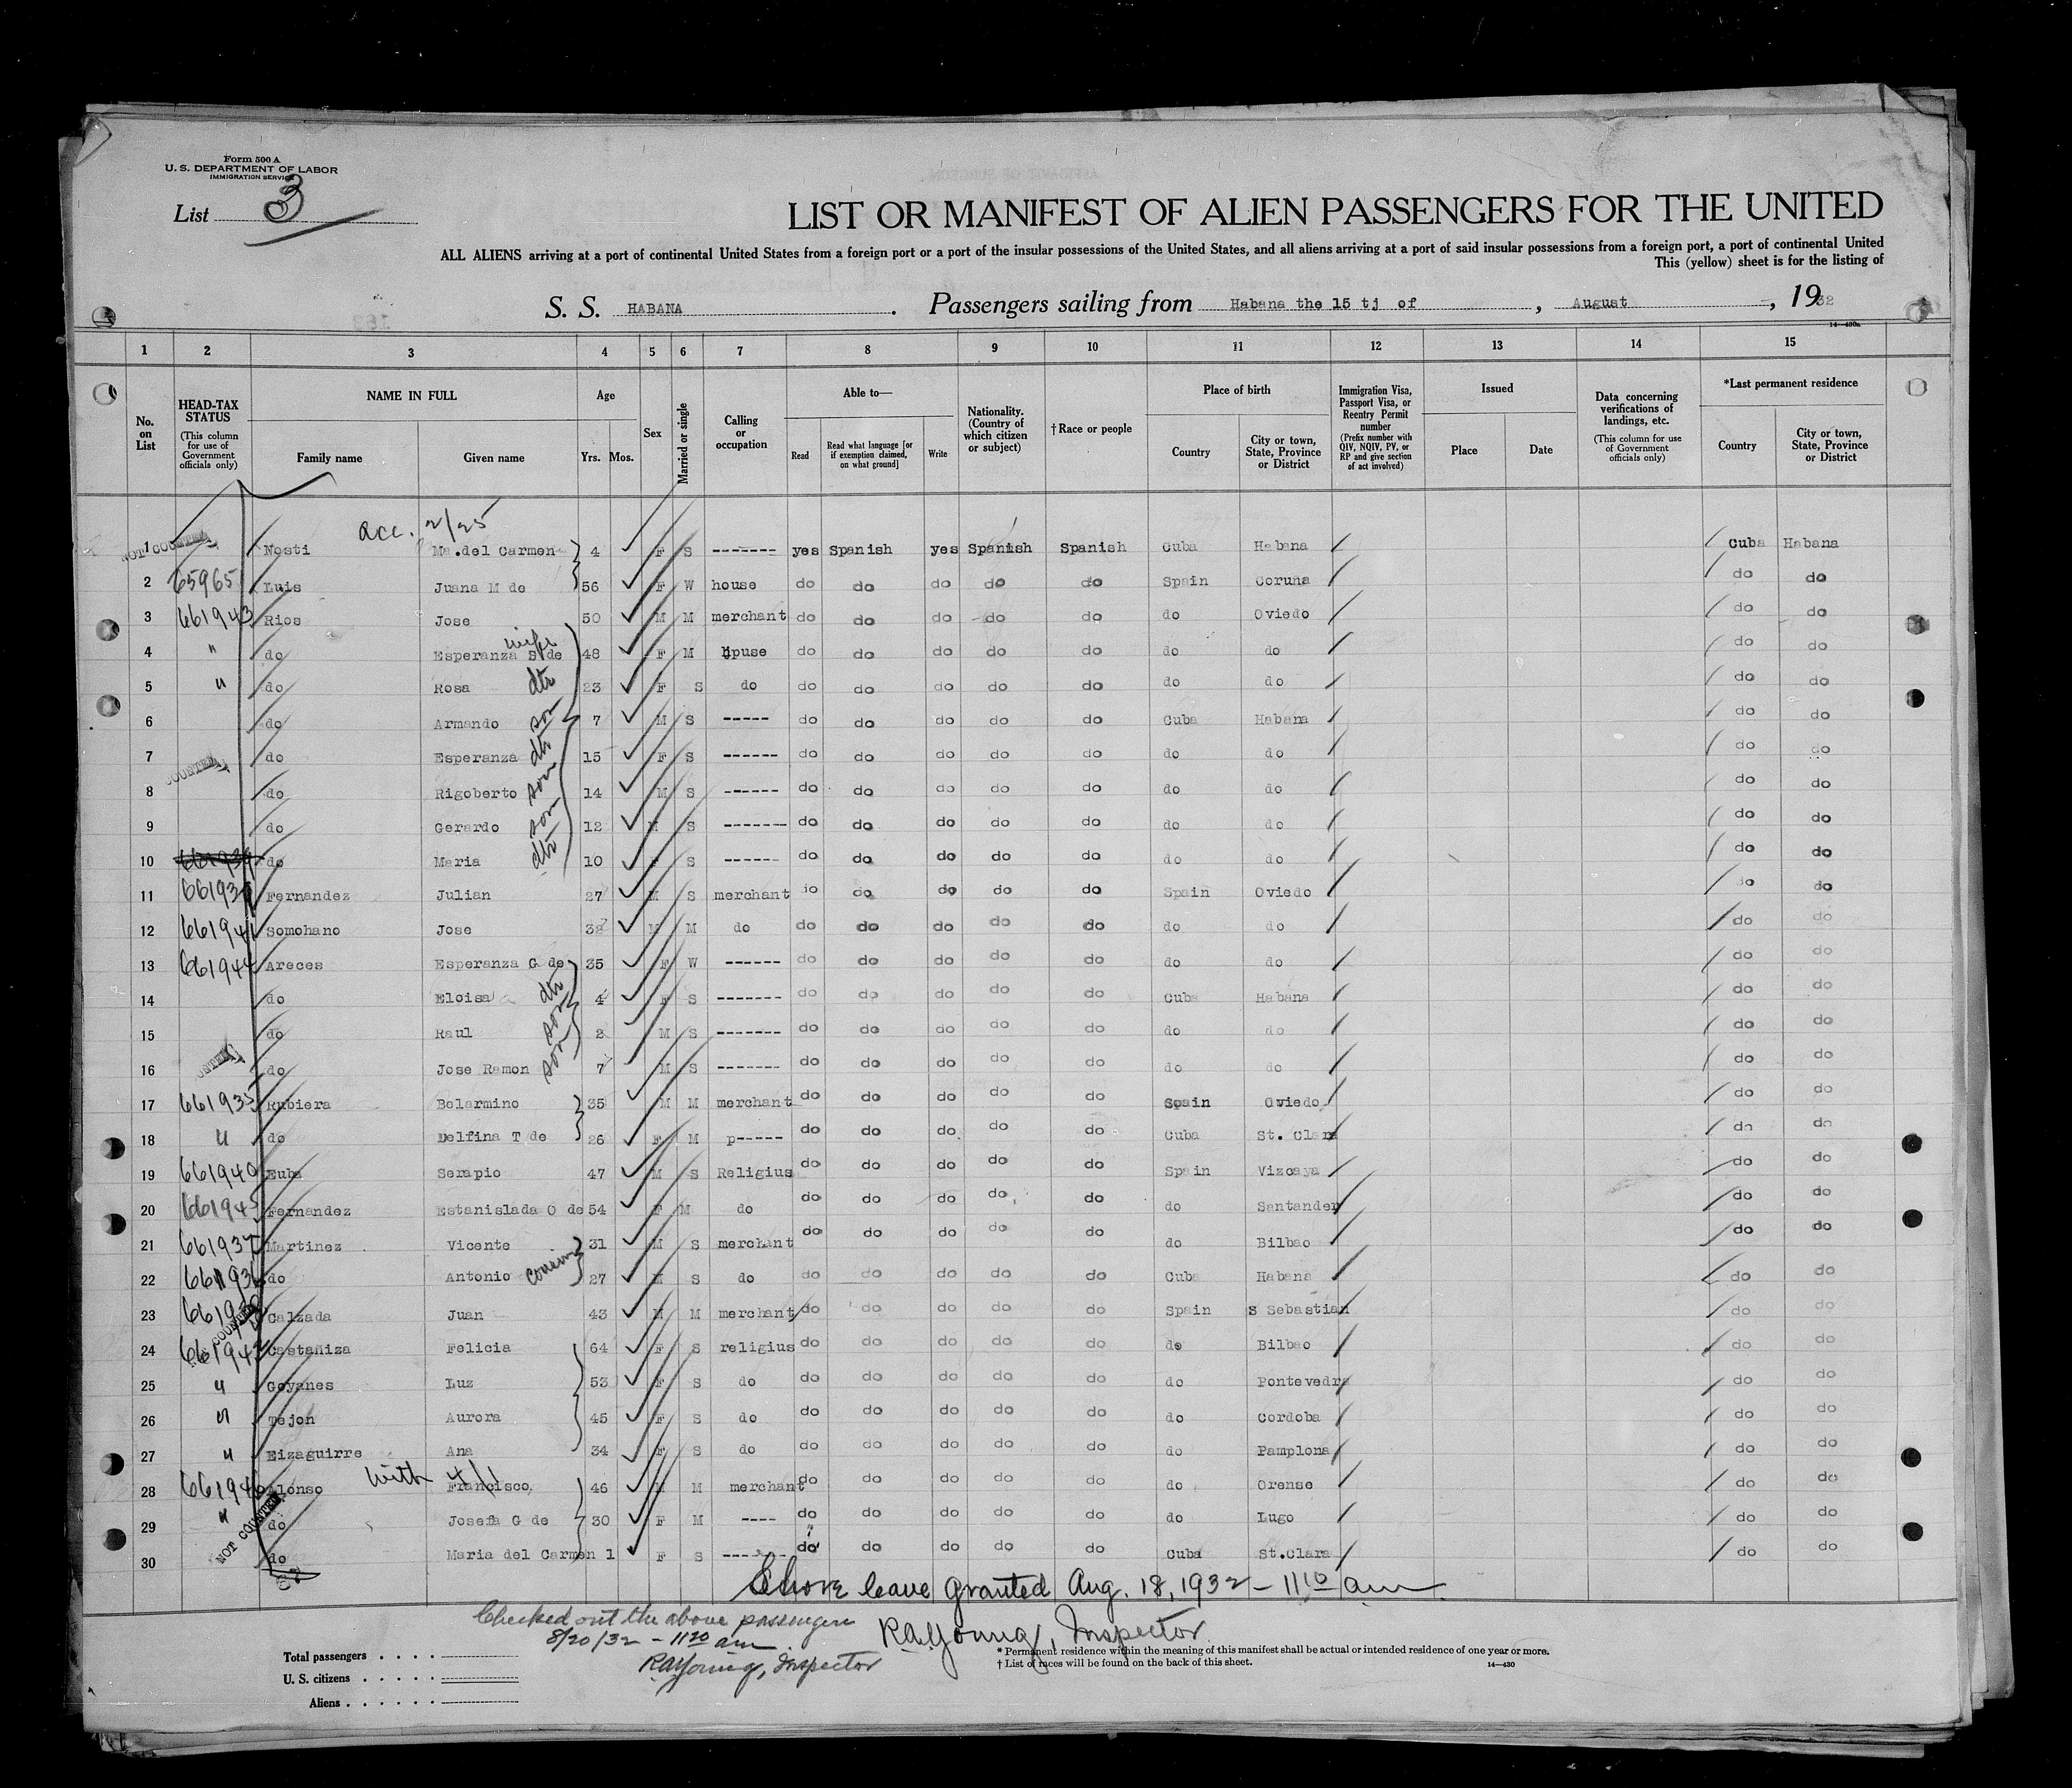 Form 500 A
U. S. DEPARTMENT OF LABOR
IMMIGRATION SERVICE
List 3
LIST OR MANIFEST OF ALIEN PASSENGERS FOR THE UNITED
ALL ALIENS arriving at a port of continental United States from a foreign port or a port of the insular possessions of the United States, and all aliens arriving at a port of said insular possessions from a foreign port, a port of continental United
This (yellow) sheet is for the listing of
S. S. HABANA. Passengers sailing from Habana the 15 tj of, August, 1932
14-430a
1 2 3 4 5 6 7 8 9 10 11 12 13 14 15
No. on List
HEAD-TAX STATUS (This column for use of Government officials only)
NAME IN FULL Family name Given name
Age Yrs. Mos.
Sex
Married or single
Calling or occupation
Able to— Read Read what language [or if exemption claimed, on what ground] Write
Nationality. (Country of which citizen or subject)
†Race or people
Place of birth Country City or town, State, Province or District
Immigration Visa, Passport Visa, or Reentry Permit number (Prefix number with QIV, NQIV, PV, or RP and give section of act involved)
Issued Place Date
Data concerning verifications of landings, etc. (This column for use of Government officials only)
*Last permanent residence Country City or town, State, Province or District
acc. 2/25
1 NOT COUNTED Nosti Ma.del Carmen 4 F S ------- yes Spanish yes Spanish Spanish Cuba Habana Cuba Habana
2 65965 Luis Juana M de 56 F W house do do do do do Spain Coruna do do
3 661943 Rios Jose 50 M M merchant do do do do do do Oviedo do do
4 " do Esperanza S de wife 48 F M Hpuse do do do do do do do do do
5 " do Rosa dtr 23 F S do do do do do do do do do do
6 do Armando son 7 M S ----- do do do do do Cuba Habana do do
7 COUNTED do Esperanza dtr 15 F S ------ do do do do do do do do do
8 do Rigoberto son 14 M S ------ do do do do do do do do do
9 do Gerardo son 12 M S ------- do do do do do do do do do
10 do Maria dtr 10 F S ------ do do do do do do do do do
11 Fernandez Julian 27 M S merchant do do do do do Spain Oviedo do do
12 661941 Somohano Jose M M do do do do do do do do do do
13 661944 Areces Esperanza G de 35 F W ------ do do do do do do do do do
14 do Eloisa dtr 4 F S ------- do do do do do Cuba Habana do do
15 do Raul son 2 M S ------- do do do do do do do do do
16 do Jose Ramon son 7 M S ------- do do do do do do do do do
17 661935 Rubiera Belarmino 35 M M merchant do do do do do Spain Oviedo do do
18 " do Delfina T de 26 F M p----- do do do do do Cuba St. Clara do do
19 661940 Euba Serapio 47 M S Religius do do do do do Spain Vizcaya do do
20 661945 Fernandez Estanislada O de 54 F M do do do do do do do Santander do do
21 661937 Martinez Vicente 31 M S merchant do do do do do do Bilbao do do
22 do Antonio cousin 27 M S do do do do do do Cuba Habana do do
23 Calzada Juan 43 M M merchant do do do do do Spain S Sebastian do do
24 661942 Castañiza Felicia 64 F S religius do do do do do do Bilbao do do
25 " Goyanes Luz 53 F S do do do do do do do Pontevedra do do
26 " Tejon Aurora 45 F S do do do do do do do Cordoba do do
27 " Eizaguirre Ana 34 F S do do do do do do do Pamplona do do
with 4/1
28 661946 Alonso Francisco, 46 M M merchant do do do do do do Orense do do
29 " do Josefa G de 30 F M ---- do do do do do do Lugo do do
30 NOT COUNTED do Maria del Carmen 1 F S ------ do do do do do Cuba St.Clara do do
Shore leave granted Aug. 18, 1932 - 11 10 am
R A Young, Inspector
Checked out the above passengers
8/20/32 - 11 20 am.
R A Young, Inspector
Total passengers
U. S. citizens
Aliens
* Permanent residence within the meaning of this manifest shall be actual or intended residence of one year or more.
† List of races will be found on the back of this sheet.
14—430